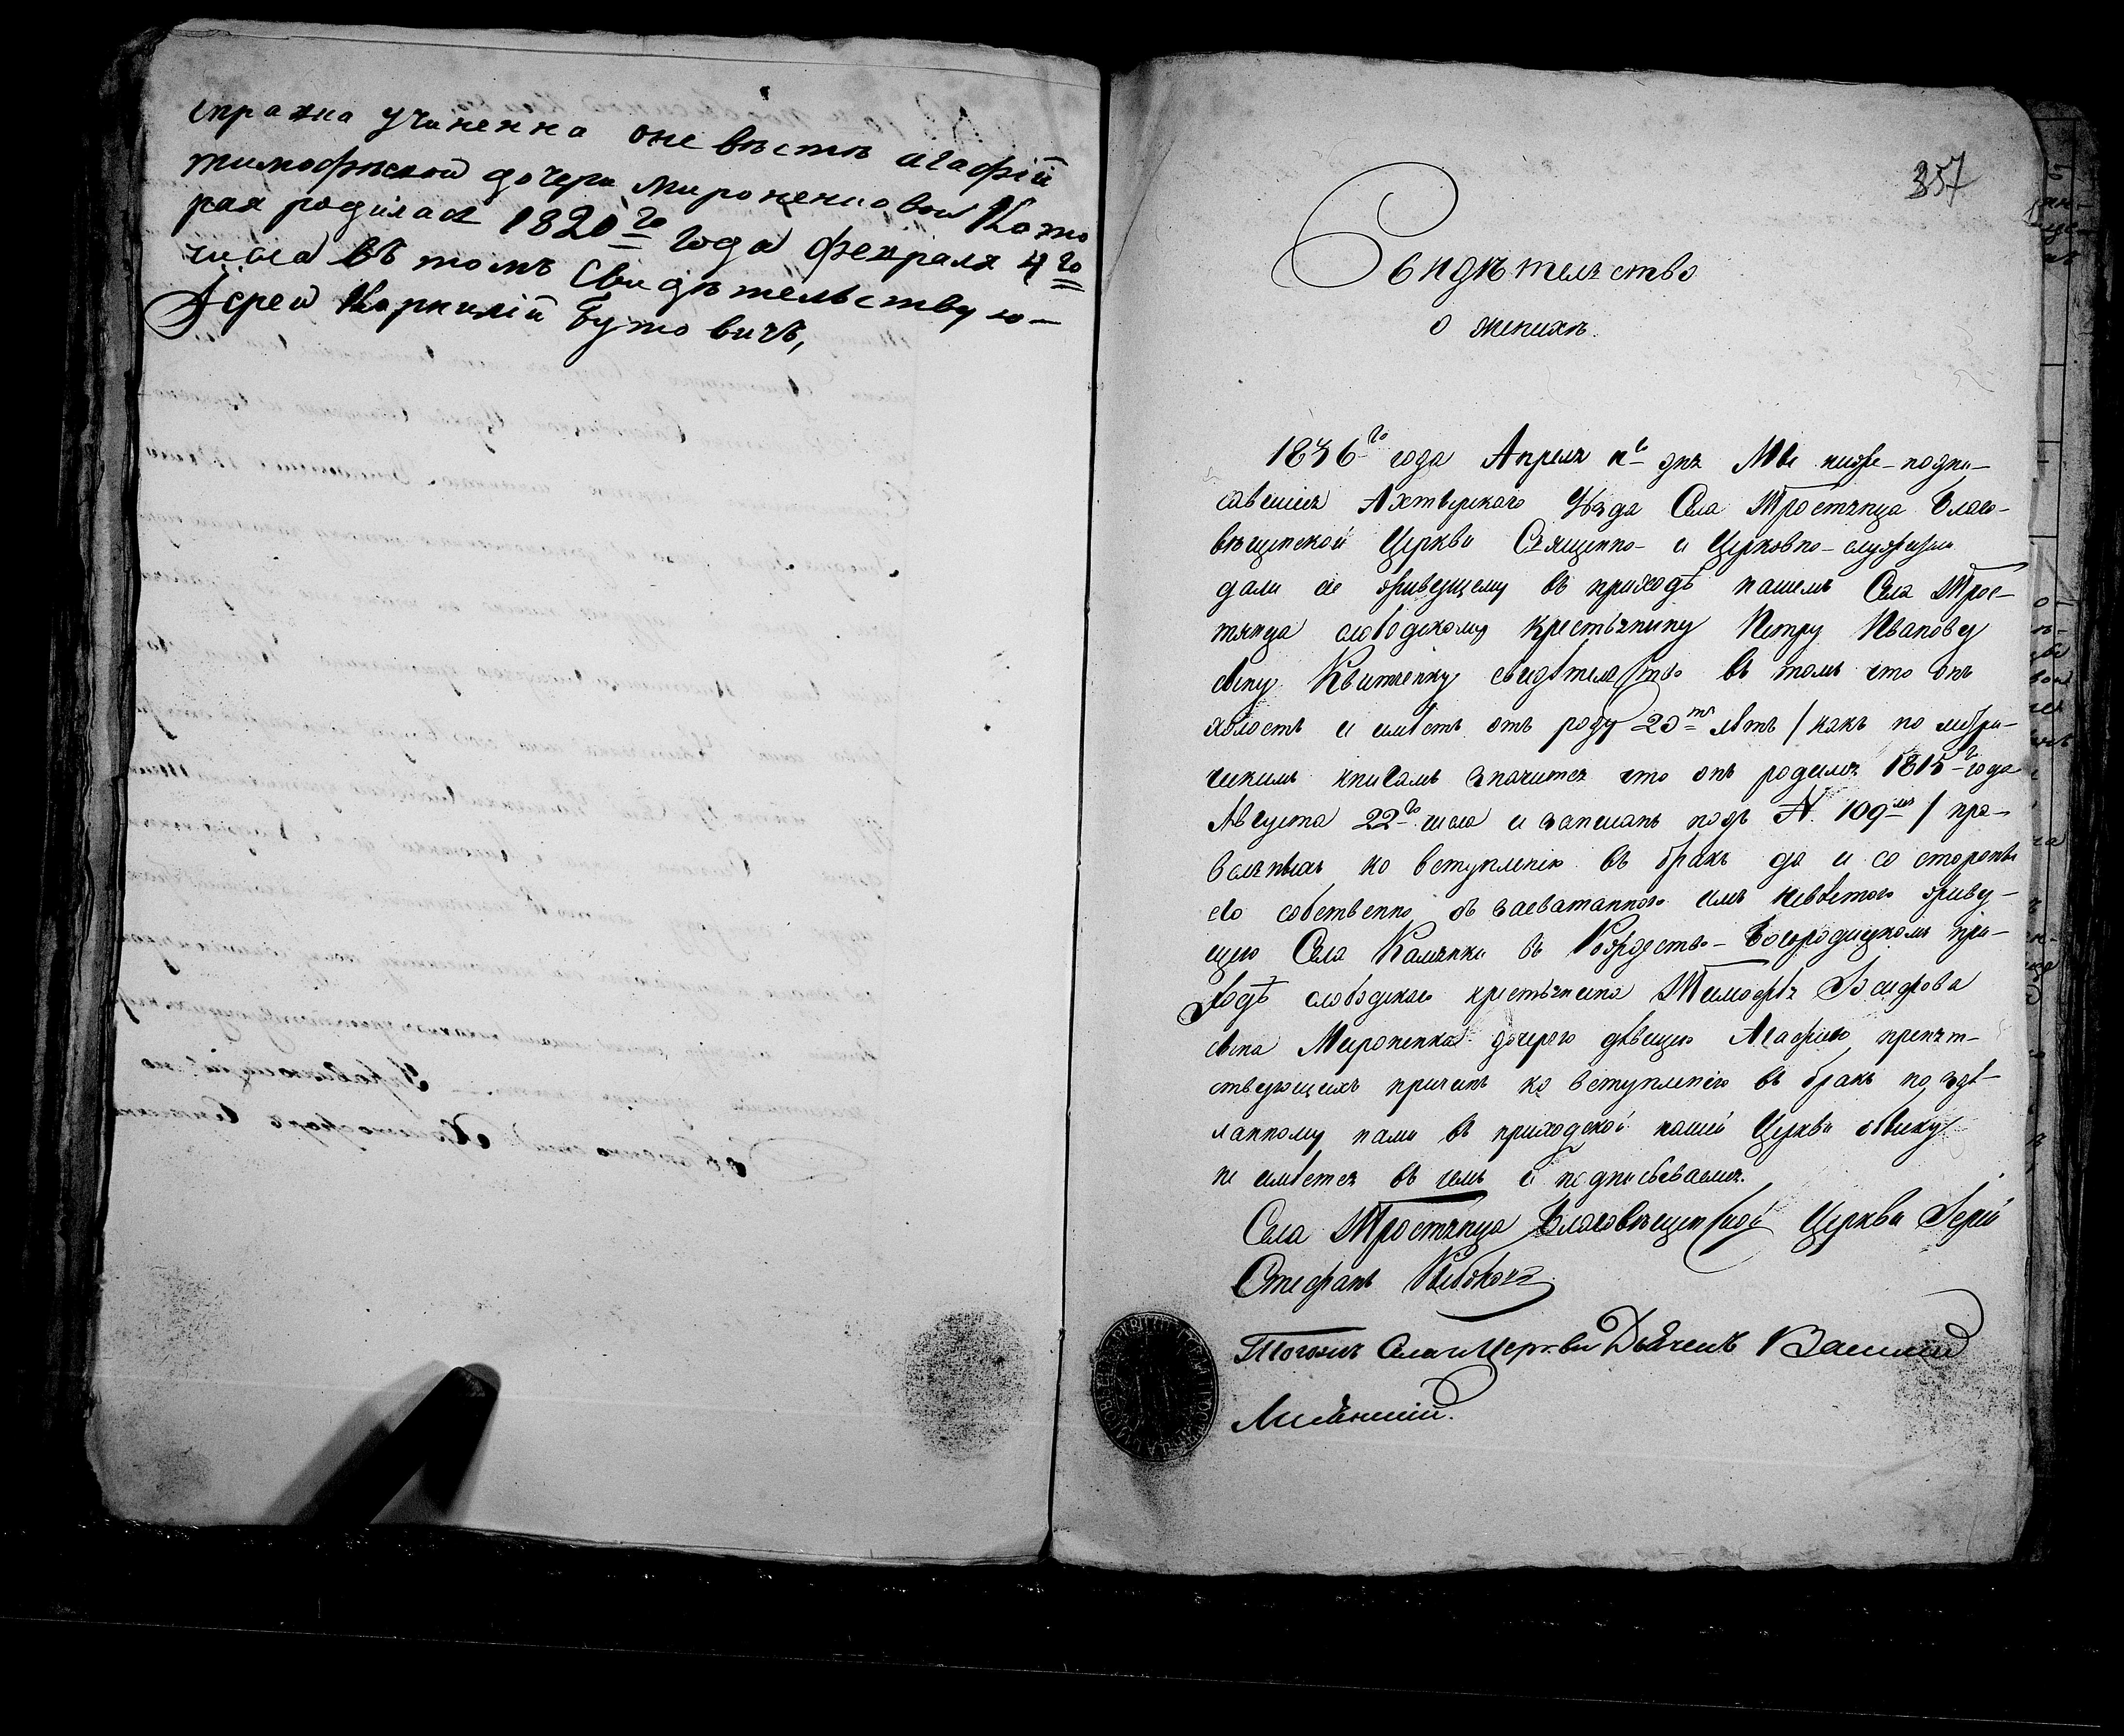 справка учиненна о невѣстѣ агафіи
тимофѣевой дочери Мироненковой Кото
рая родилась 1820го года февраля 4го
числа въ томъ Свидѣтельствую
Іерей Корнилій Бутовичъ,
357
Свидѣтелство
о женихѣ.
1836го года Апреля дня Мы ниже-подпи-
савшіися Ахтырскаго Уѣзда Села Тростянца Благо-
вѣщенской Церкви Священно- и Церковно-служители
дали сіе живущему въ приходѣ нашемъ Села Трос-
тянца слободскому крестьянину Петру Иванову
сыну Квитченку свидѣтелство въ томъ что онъ
холостъ и имѣетъ отъ роду 20ть лѣтъ / какъ по метри-
ческимъ книгамъ значится что онъ родился 1815го года
Августа 22го числа и записанъ подъ № 109мъ /
ко вступленію въ бракъ да и со стороны
его собственно и засватанной имъ невѣстою живу-
щею Села Камянки въ Рождество-Богородицкомъ при-
ходѣ слободскаго крестьянина Тимофѣя
сына Мироненка дочерью дѣвицею Агафіею препят-
ствующихъ причинъ ко вступленію въ бракъ по здѣ-
ланному нами въ приходской нашей Церкви обыску
не имѣется въ чемъ и подписываемся.
Села Тростянца Благовѣщенской Церкви Іерей
Стефанъ
Тогожъ Села и Церкви Дьячекъ Василій